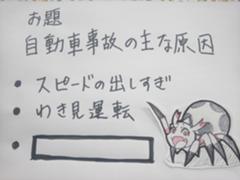 お題
自動車事故の主な原因
• スピードの出しすぎ
• わき見運転
•